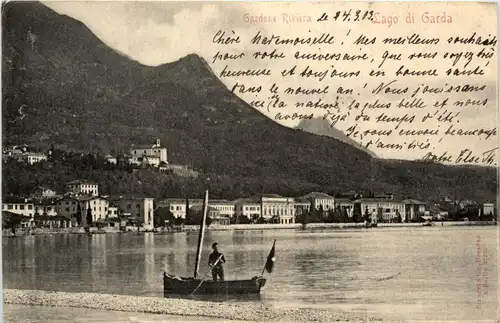 Gardone Riviera le 24.3.02 Lago di Garda
Chère Mademoiselle! Mes meilleurs souhaits
pour votre anniversaire, que vous soyez très
heureuse et toujours en bonne santé
dans le nouvel an! Nous jouissons
ici la nature, la plus belle et nous
avons déjà du temps d'été.
Je vous envoy beaucoup
d'amitiés.
votre